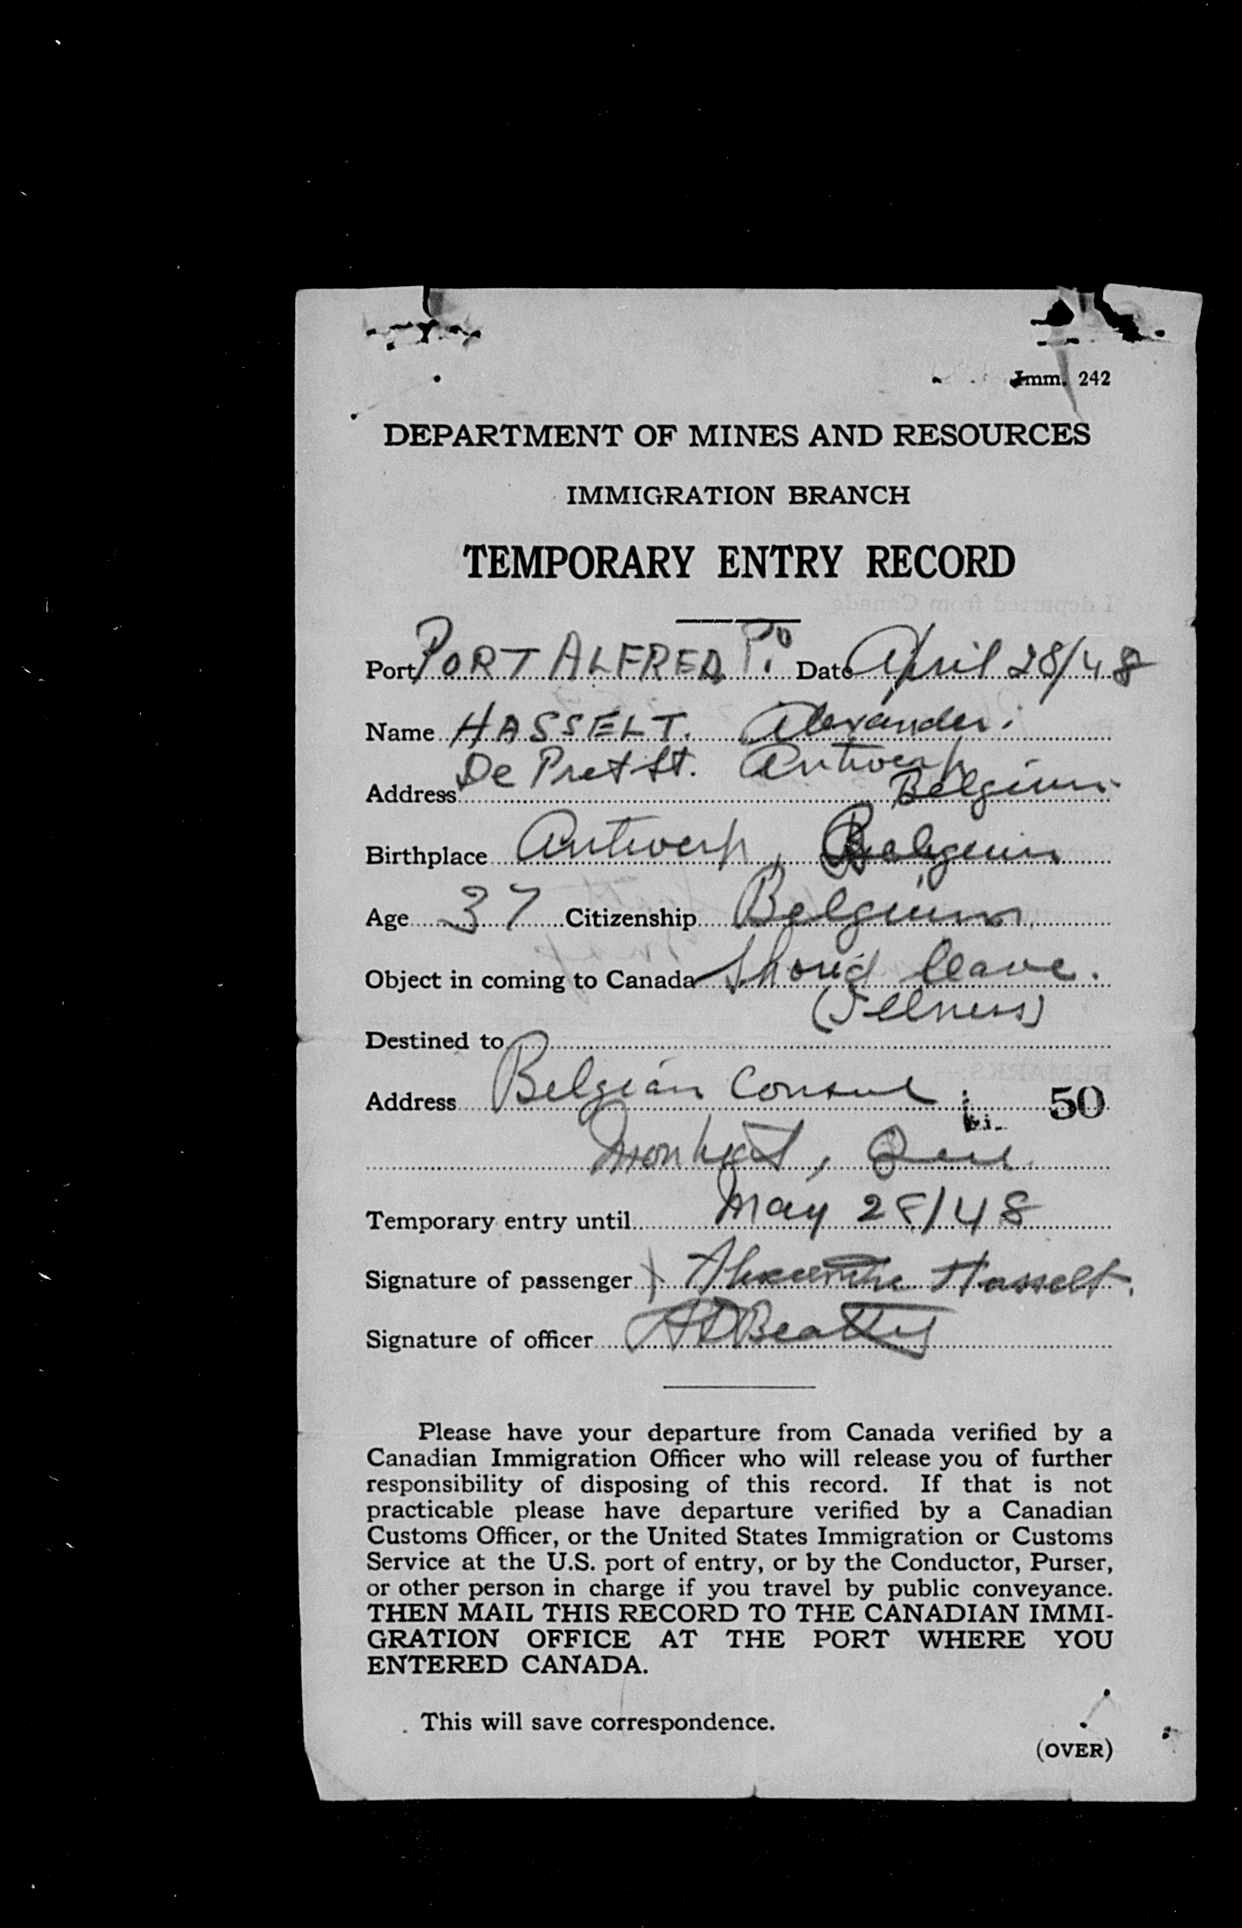 Imm. 242
DEPARTMENT OF MINES AND RESOURCES
IMMIGRATION BRANCH
TEMPORARY ENTRY RECORD
Port PORT ALFRED P.Q Date April 28/48
Name HASSELT. Alexander.
De Pret St. Antwerp
Address Belgium
Birthplace Antwerp, Belgium
Age 37 Citizenship Belgium
Object in coming to Canada Shore leave.
(Illness)
Destined to
Address Belgian Consul 50
Montreal, Que.
Temporary entry until May 28/48
Signature of passenger x Alexandre Hasselt.
Signature of officer A D Beatty
Please have your departure from Canada verified by a
Canadian Immigration Officer who will release you of further
responsibility of disposing of this record. If that is not
practicable please have departure verified by a Canadian
Customs Officer, or the United States Immigration or Customs
Service at the U.S. port of entry, or by the Conductor, Purser,
or other person in charge if you travel by public conveyance.
THEN MAIL THIS RECORD TO THE CANADIAN IMMI-
GRATION OFFICE AT THE PORT WHERE YOU
ENTERED CANADA.
This will save correspondence.
(OVER)